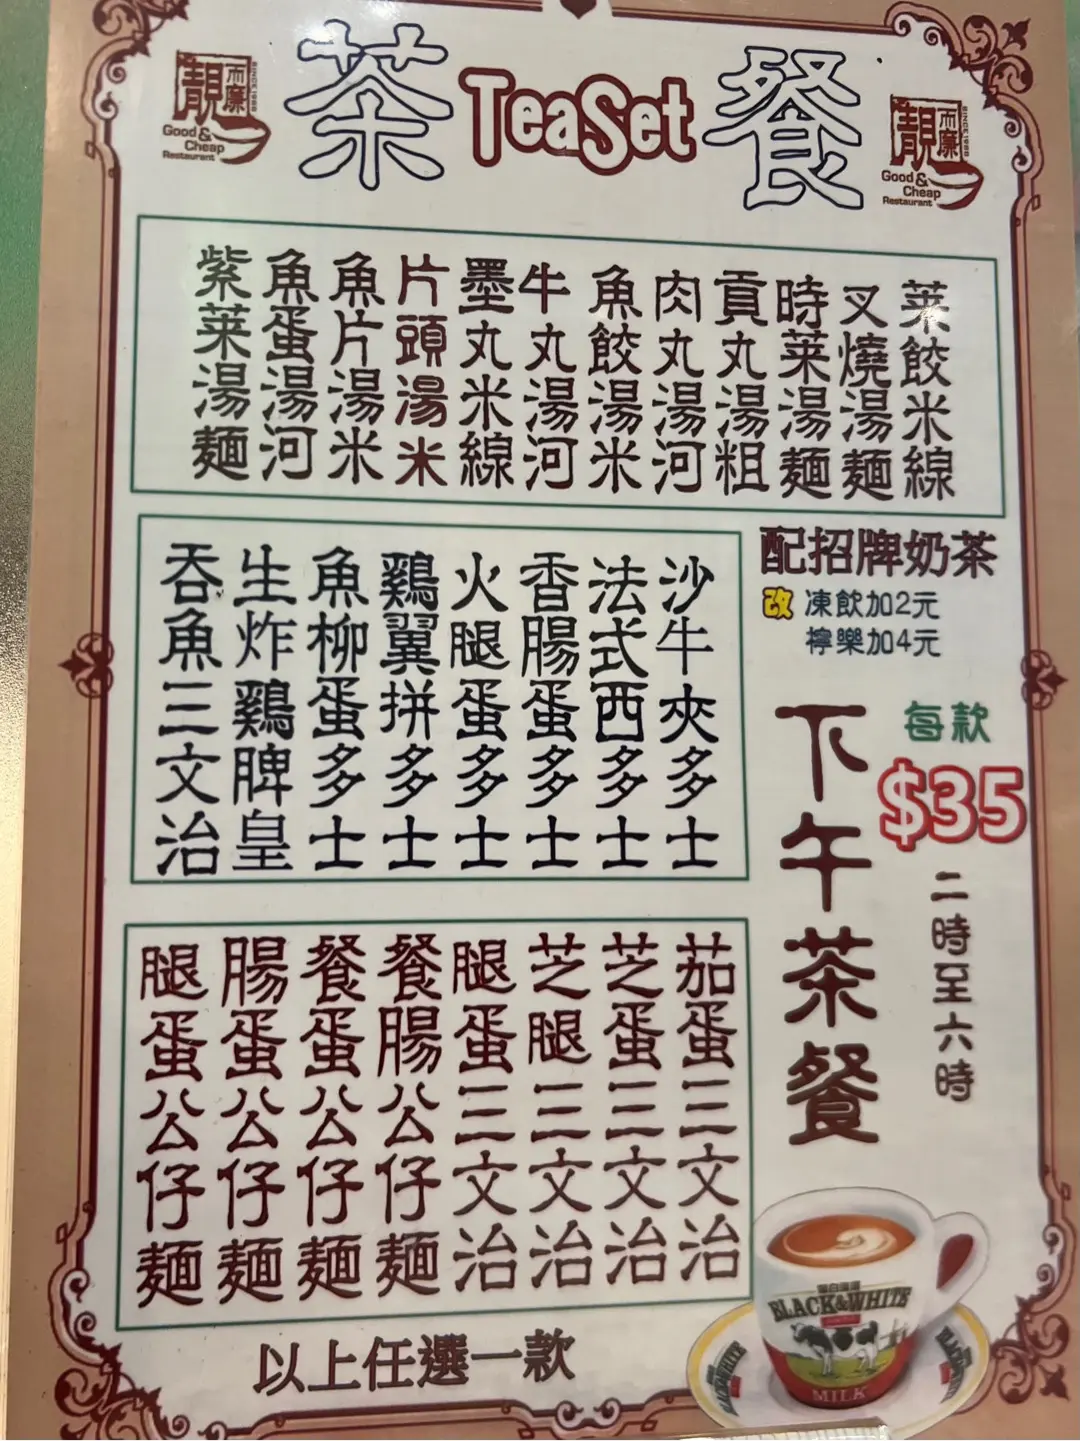 靚而廉
SINCE 1988
Good & Cheap
Restaurant
茶 TeaSet 餐
靚而廉
SINCE 1988
Good & Cheap
Restaurant
菜餃米線
叉燒湯麵
時菜湯麵
貢丸湯粗
肉丸湯河
魚餃湯米
牛丸湯河
墨丸米線
片頭湯米
魚片湯米
魚蛋湯河
紫菜湯麵
配招牌奶茶
改 凍飲加2元
檸樂加4元
沙牛夾多士
法式西多士
香腸蛋多士
火腿蛋多士
鷄翼拼多士
魚柳蛋多士
生炸鷄脾皇
吞魚三文治
每款
$35
下午茶餐
二時至六時
茄蛋三文治
芝蛋三文治
芝腿三文治
腿蛋三文治
餐腸公仔麵
餐蛋公仔麵
腸蛋公仔麵
腿蛋公仔麵
以上任選一款
BLACK&WHITE
MILK
BLACK&WHITE